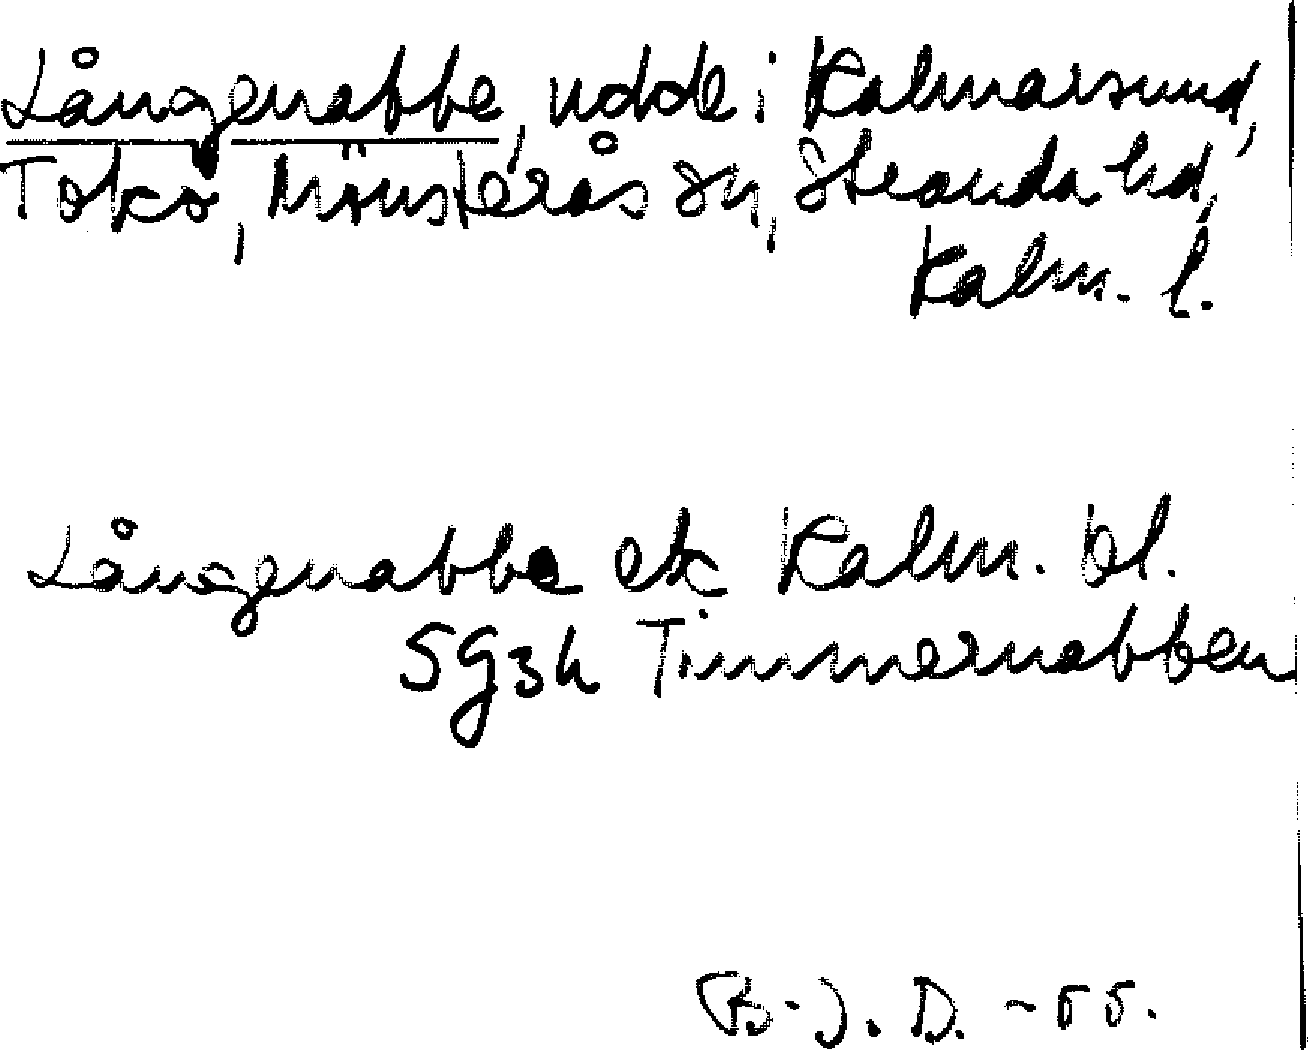 Långenabbe, udde i Kalmarsund,
Tokö, Mönsterås sn, Stranda hd,
Kalm. l.
Långgnabbe ek Kalm. bl.
5g3h Timmernabben
B-J. D. -55.